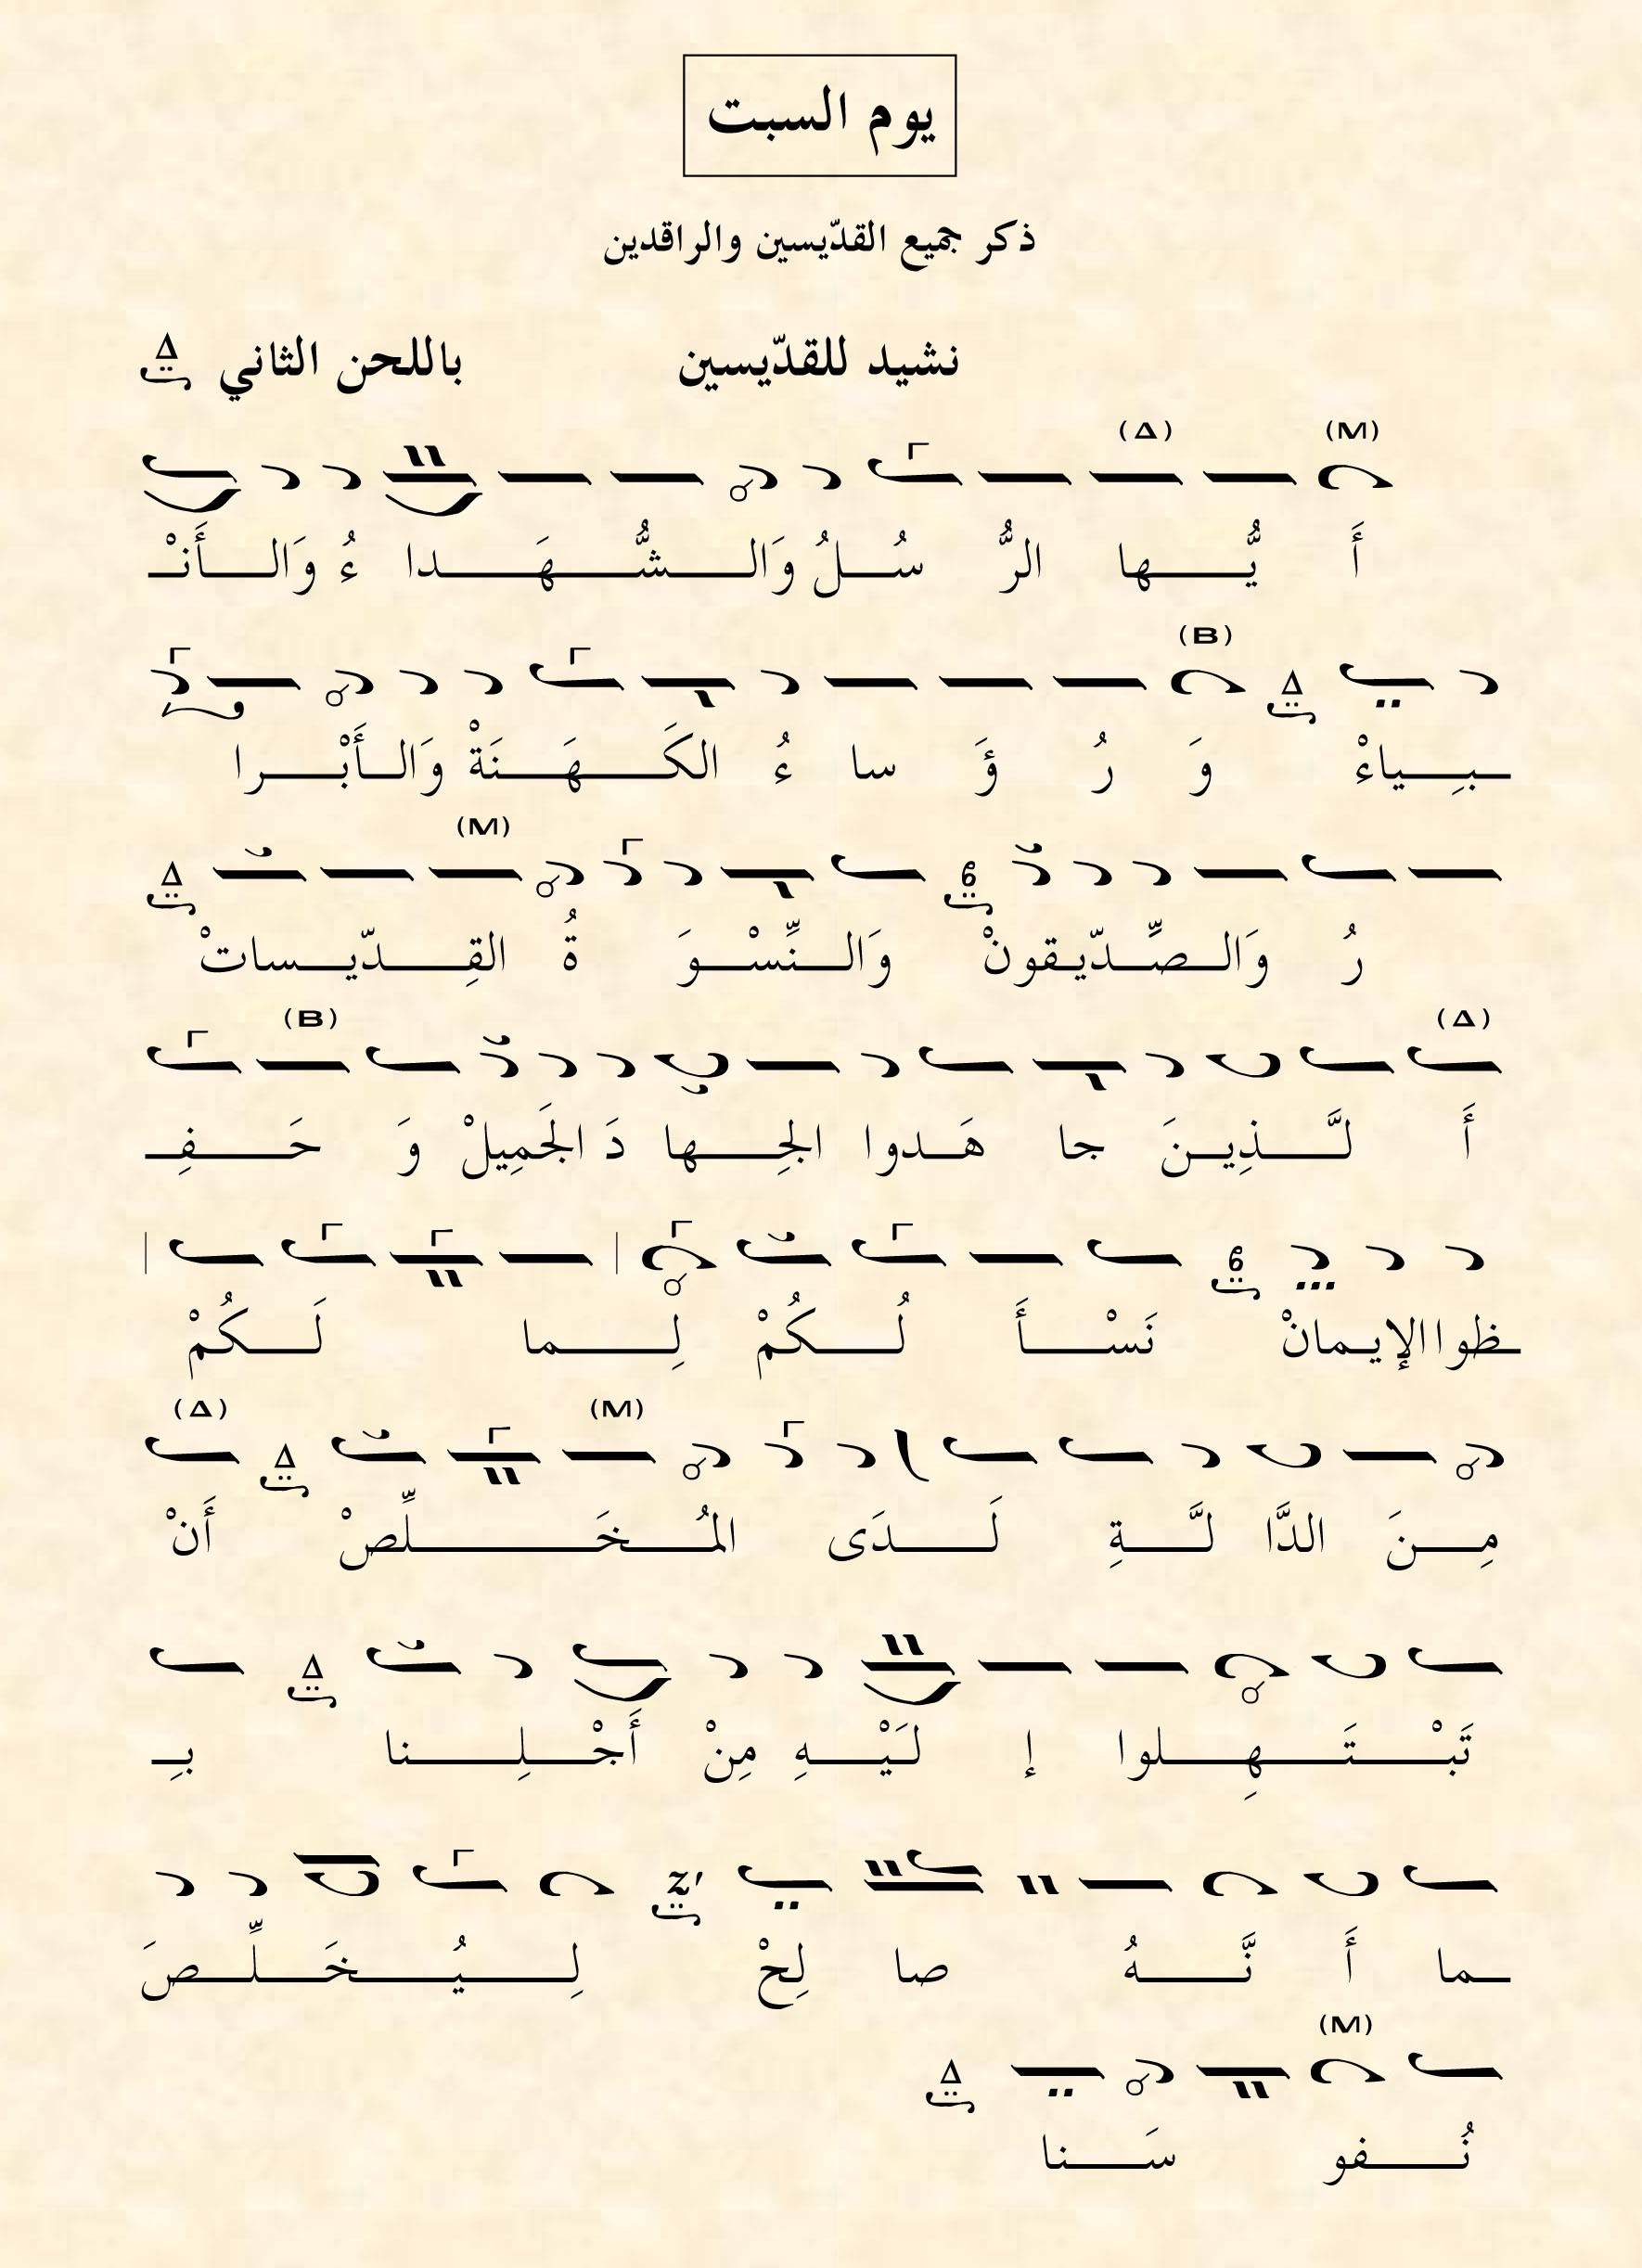 يوم السبت
ذكر جميع القدّيسين والراقدين
نشيد للقدّيسين باللحن الثاني Δ
(M) (Δ)
أَ يُّـــها الرُّ سُــلُ وَالــشُّــهَــدا ءُ وَالــأَنْـ
(B) Δ
ـبِــياءْ وَ رُ ؤَ سا ءُ الكَــهَــنَةْ وَالــأَبْــرا
(M) Δ
رُ وَالــصِّــدّيـقونْ وَالــنِّسْــوَ ةُ القِــدّيــساتْ
(Δ) (B)
أَ لَّــذِيــنَ جا هَــدوا الجِــها دَ الجَمِيلْ وَ حَــفِـ
ـظوا الإيـمانْ نَسْــأَ لُــكُمْ لِــما لَــكُمْ
(M) Δ (Δ)
مِــنَ الدَّا لَّــةِ لَــدَى المُــخَــلِّصْ أَنْ
Δ
تَبْــتَــهِــلوا إ لَيْــهِ مِنْ أَجْــلِــنا بِـ
ـما أَ نَّــهُ صا لِحْ لِــيُــخَــلِّــصَ
(M) Δ
نُــفو سَــنا